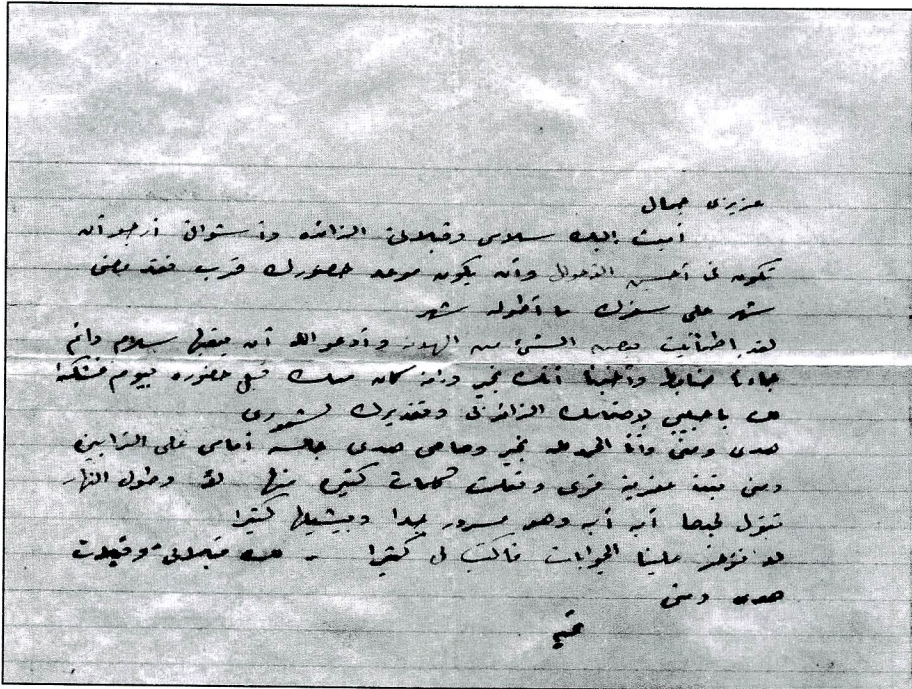 عزيزى جمال
أبعث إليك سلامى وقبلاتى الزائده وأشواقى أرجو أن
تكون فى أحسن الأحوال وأن يكون موعد حضورك قرب فقد مضى
شهر على سفرك ما أطوله شهر
لقد اطمأنيت بعض الشئ من الهدنه وأدعو الله أن يعقبها سلام دائم
جاءنا ضابط وأخبرنا أنك بخير وانه كان معك قبل حضوره بيوم فشكرا
لك يا حبيبى لاهتمامك الزائد بى وتقديرك لشعورى
هدى ومنى وأنا الحمد لله بخير وها هى هدى جالسه أمامى على الترابيزه
ومنى بقت عفريتة قوى وتعلمت كلمات كثيره منها لأ وطول النهار
تقول لجدها أبه أبه وهو مسرور جدا وبيشيلها كثيرا
لا تؤخر علينا الجوابات فاكتب لى كثيرا - لك قبلاتى وقبلات
هدى ومنى
تحيه